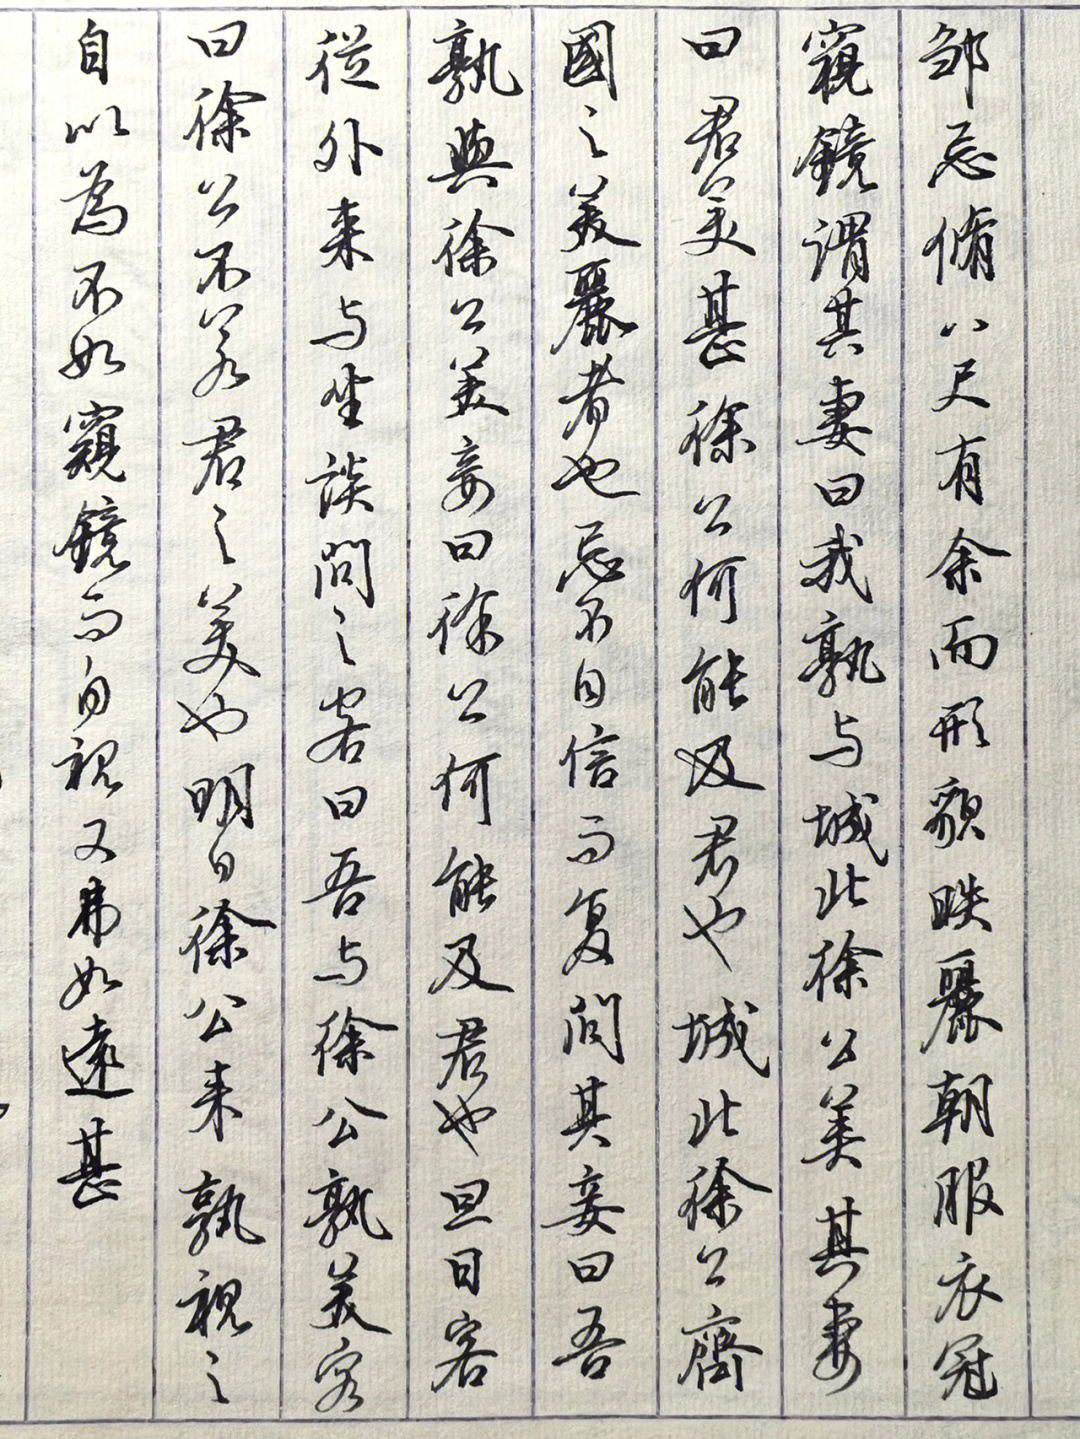 邹忌脩八尺有余而形貌昳麗朝服衣冠
窺鏡謂其妻曰我孰与城北徐公美其妻
曰君美甚徐公何能及君也城北徐公齊
國之美麗者也忌不自信而复问其妾曰吾
孰與徐公美妾曰徐公何能及君也旦日客
從外来与坐談問之客曰吾与徐公孰美客
曰徐公不若君之美也明日徐公来孰視之
自以為不如窺鏡而自視又弗如遠甚